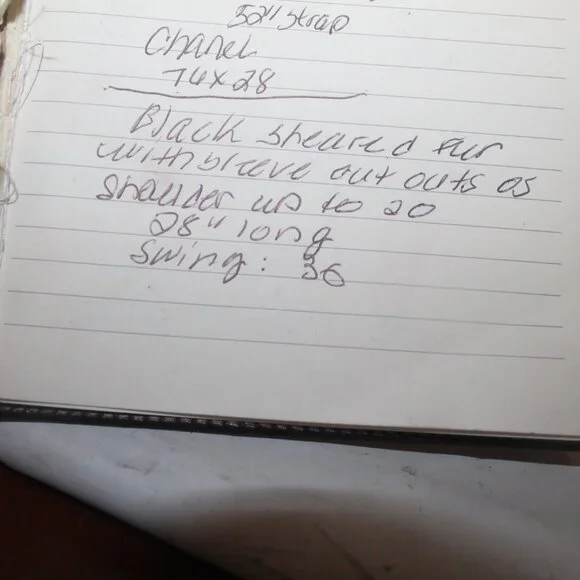 52" strap
Chanel
74 x 28
Black sheared fur
with sleeve cut outs OS
shoulder up to 20
28" long
Swing: 36